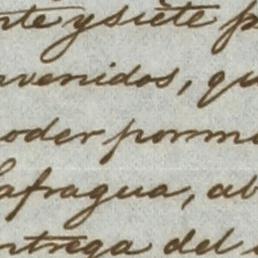 nte ysiete p
nvenidos, qu
oder porme
afragua, ab
ntrega del